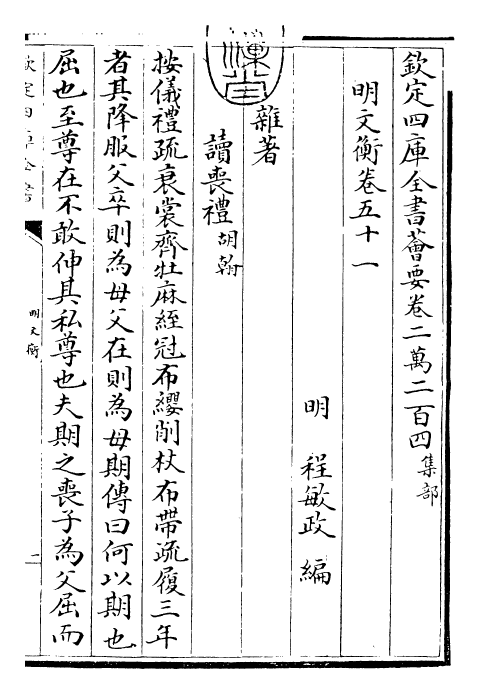 欽定四庫全書薈要卷二萬二百四集部
明文衡卷五十一
明 程敏政 編
雜著
讀喪禮胡翰
按儀禮疏衰裳齊牡麻絰冠布纓削杖布帶疏屨三年
者其降服父卒則為母父在則為母期傳曰何以期也
屈也至尊在不敢伸其私尊也夫期之喪子為父屈而
欽定四庫全書
明文衡
一